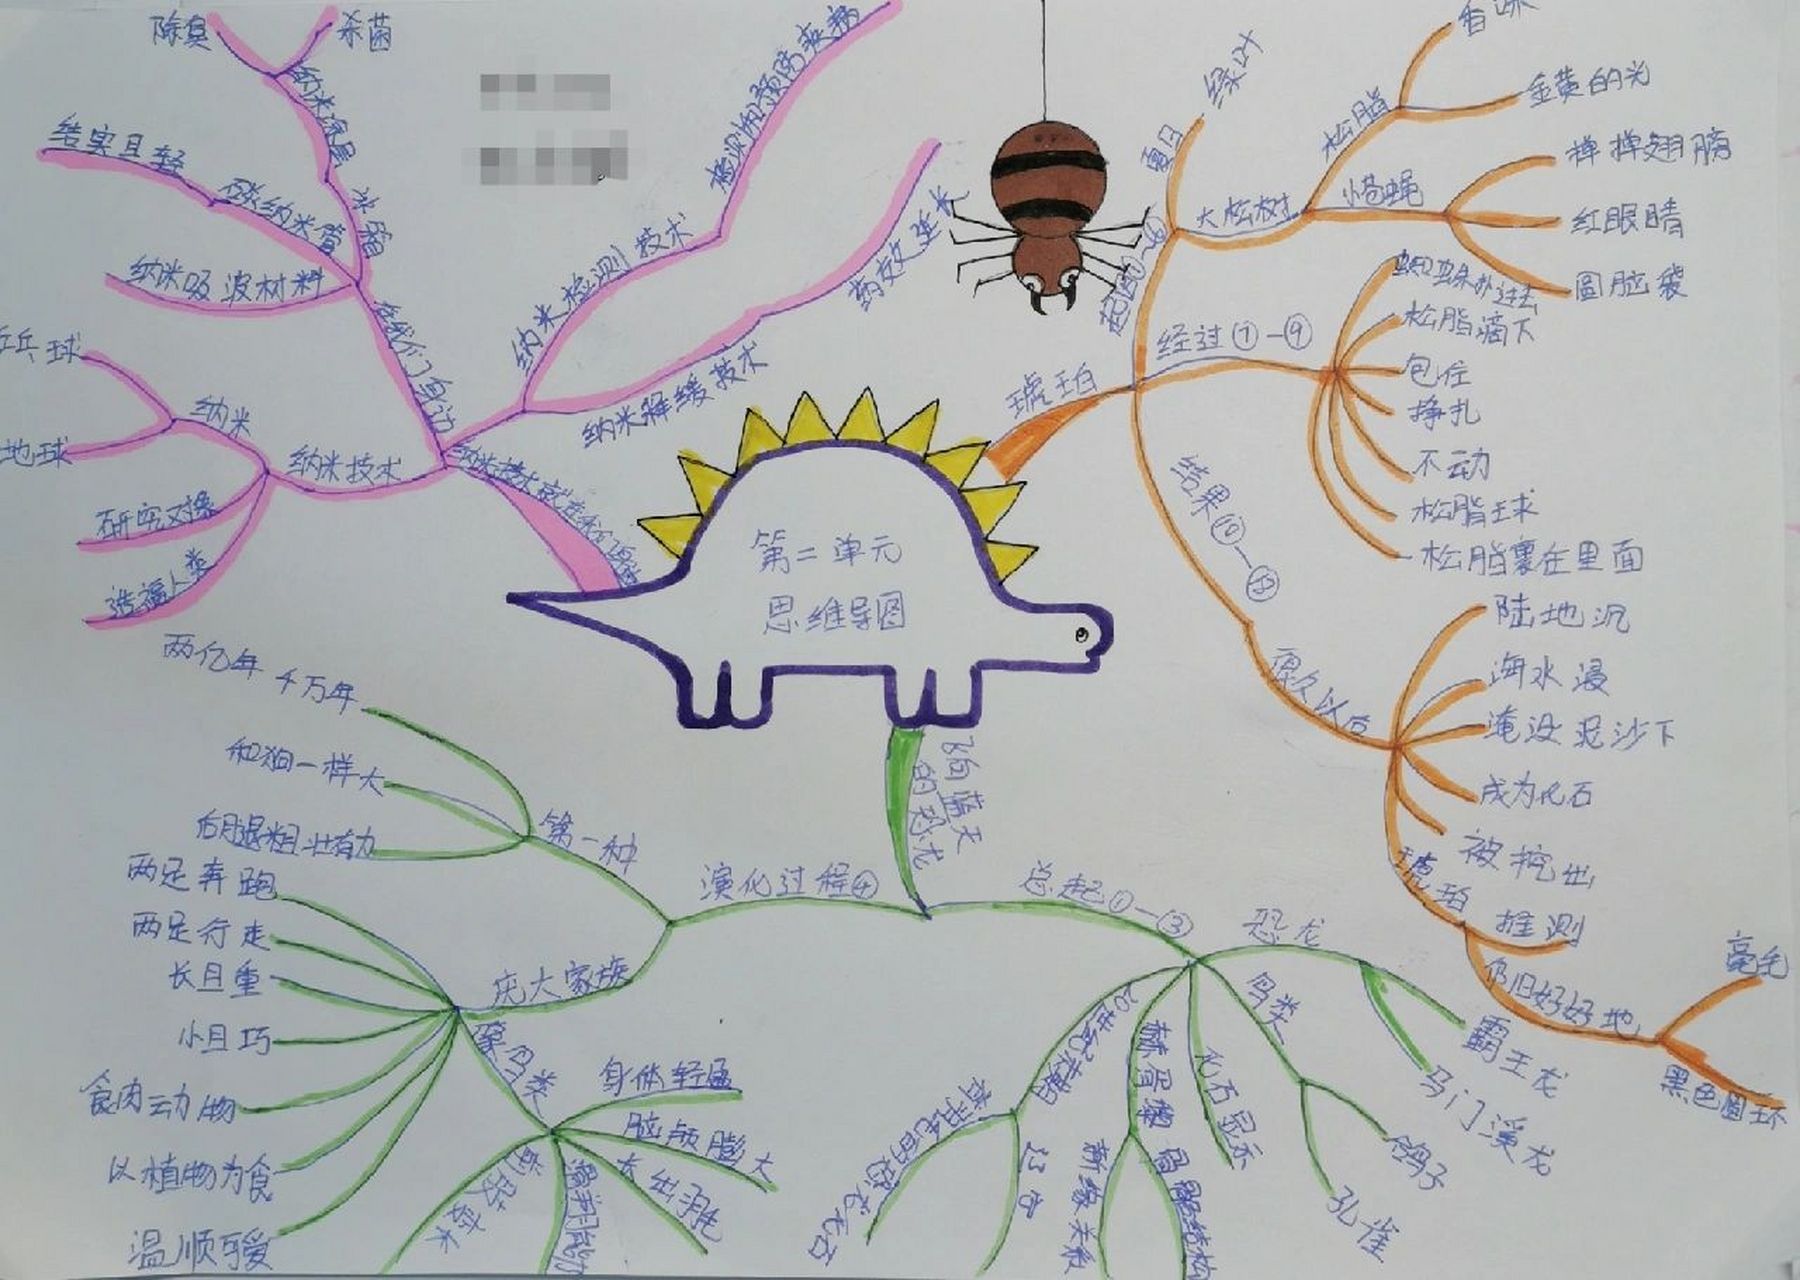 第二单元
思维导图
除臭
杀菌
纳米涂层
冰箱
结实且轻
碳纳米管
纳米吸波材料
在我们身边
乒乓球
地球
纳米
纳米技术
研究对象
造福人类
纳米技术就在我们身边
纳米检测技术
检测和预防疾病
纳米释缓技术
药效延长
琥珀
夏日
绿叶
大松树
松脂
香味
金黄的光
小苍蝇
掸掸翅膀
红眼睛
圆脑袋
经过⑦—⑨
蜘蛛扑过去
松脂滴下
包住
挣扎
不动
松脂球
松脂裹在里面
结果⑩—⑱
很久以后
陆地沉
海水浸
淹没泥沙下
成为化石
被挖出
琥珀
推测
仍旧好好地
毫毛
黑色圆环
飞向蓝天
的恐龙
演化过程④
第一种
两亿年千万年
和狗一样大
后腿粗壮有力
庞大家族
两足奔跑
两足行走
长且重
小且巧
食肉动物
以植物为食
温顺可爱
像鸟类
身体轻盈
脑颅膨大
长出羽毛
总起①—③
恐龙
霸王龙
马门溪龙
鸟类
鸽子
孔雀
化石显示
赫胥黎
新缘关系
骨骼结构
20世纪末期
辽西